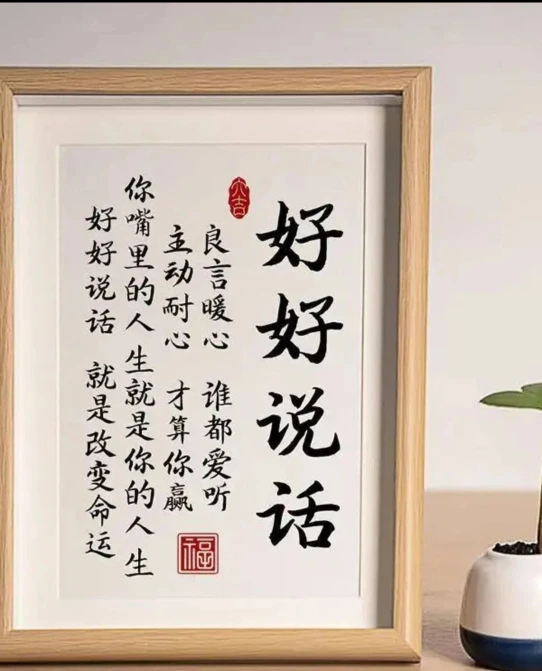 好好说话
大吉
良言暖心 谁都爱听
主动耐心 才算你赢
福
你嘴里的人生就是你的人生
好好说话 就是改变命运